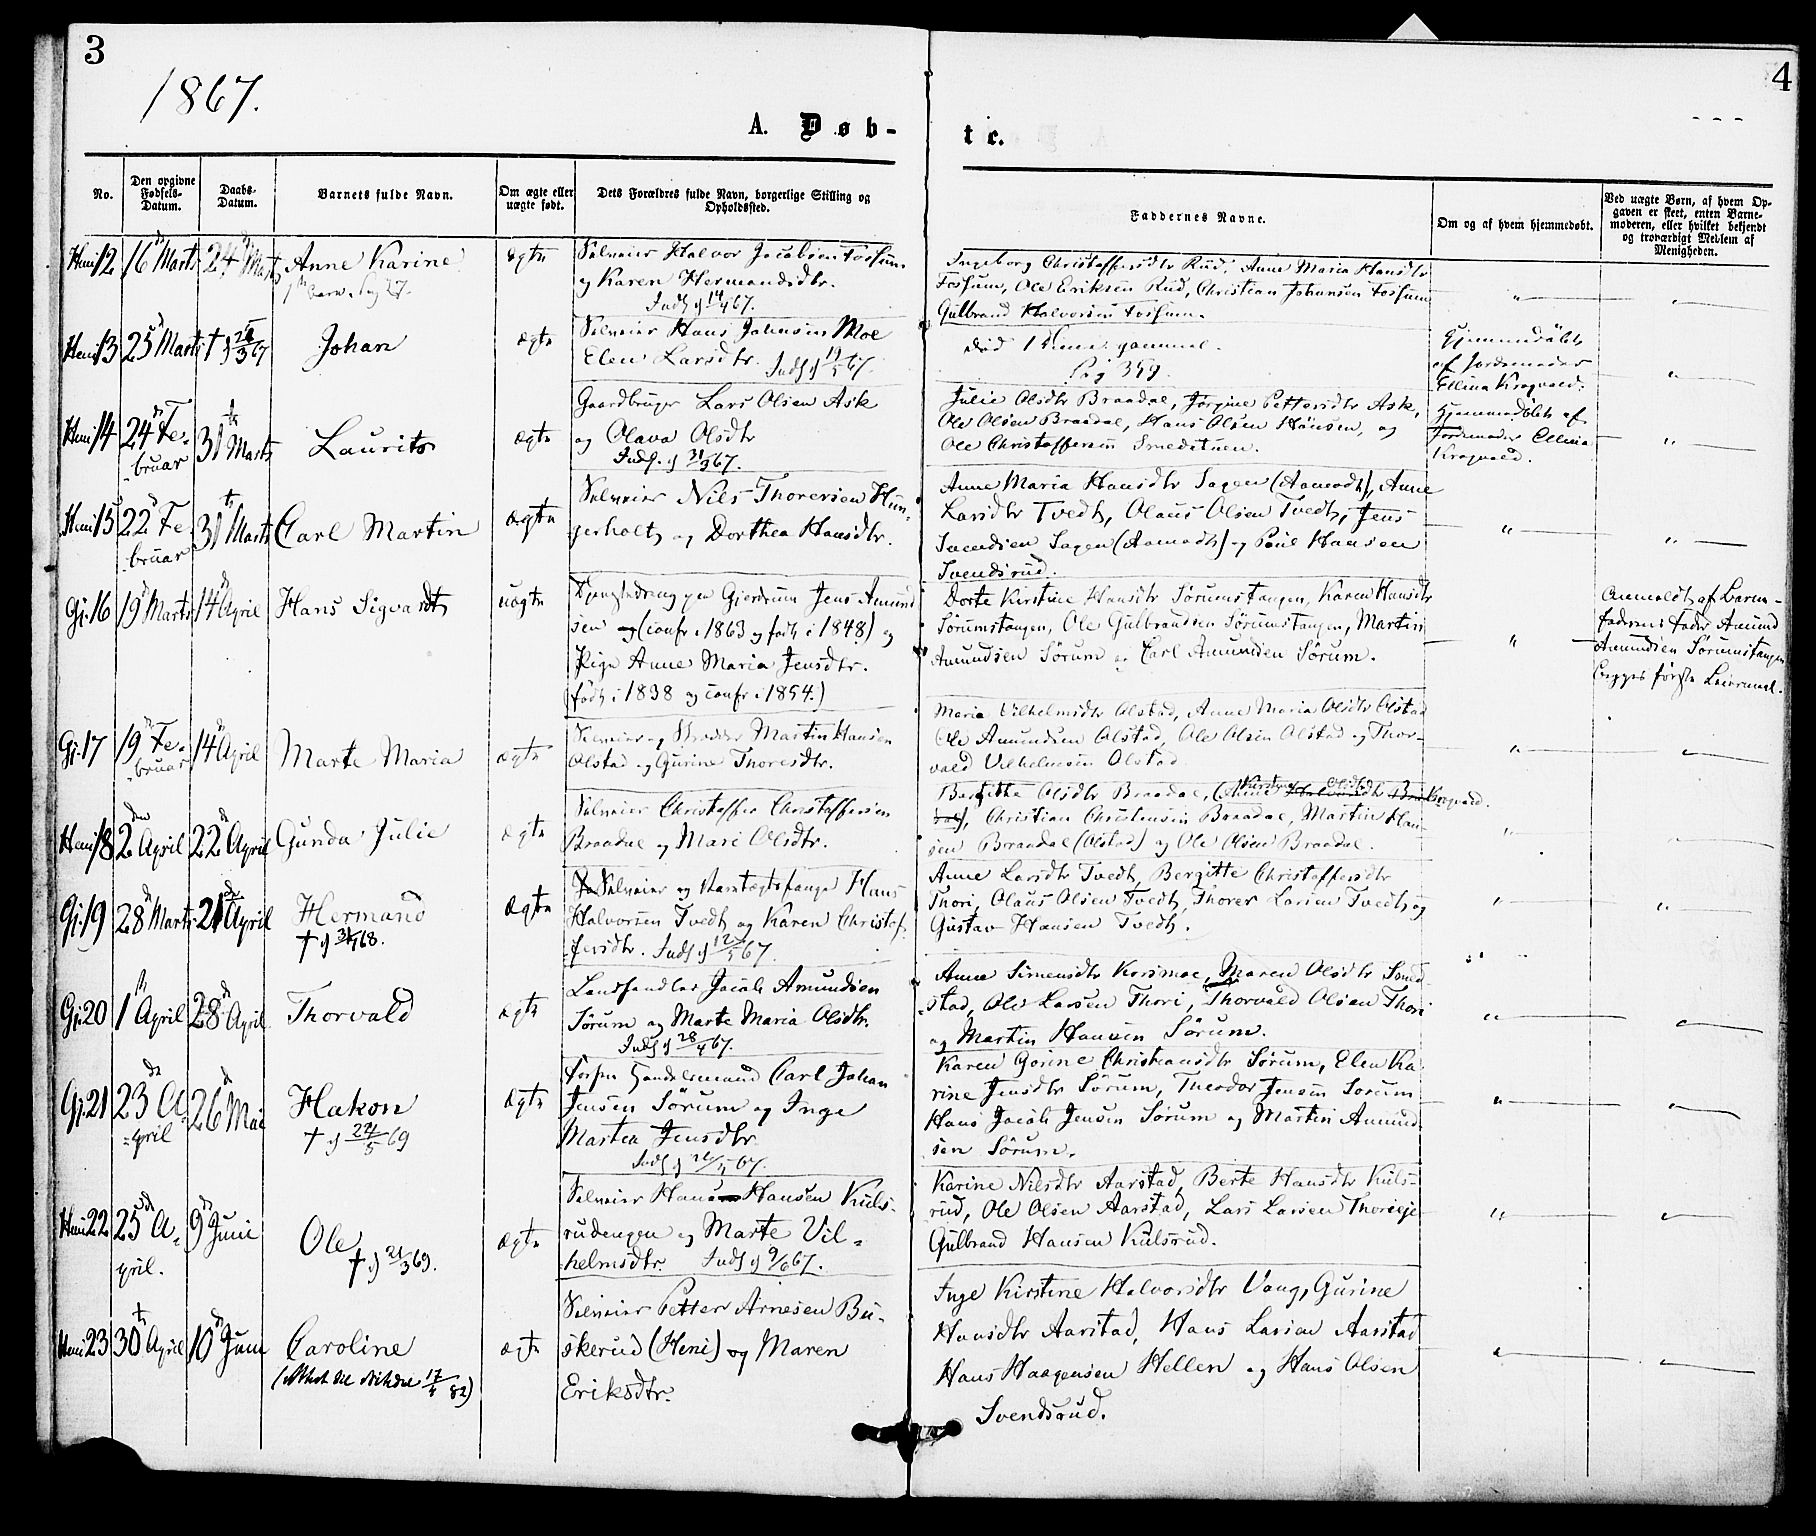 3
4
1867.
A. Døb-
te.
No.
Den opgivne Fødsels-Datum.
Daabs-Datum.
Barnets fulde Navn.
Om ægte eller uægte født.
Dets Forældres fulde Navn, borgerlige Stilling og Opholdssted.
Faddernes Navne.
Om og af hvem hjemmedøbt.
Ved uægte Børn, af hvem Op-
gaven er skeet, enten Barne-
moderen, eller hvilket bekjendt
og troværdigt Medlem af
Menigheden.
Heni 12
16 Marts
24 Marts
Anne Karine
ægte
Selveier Halvor Jacobsen Fossum
og Karen Hermandsdtr.
Inds. 14/4 67.
Ingeborg Christoffersdtr Rud, Anne Maria Hansdtr
Fossum, Ole Eriksen Rud, Christian Johansen Fossum
Gulbrand Halvorsen Fossum.
Heni 13
25 Marts
† 26/3 67
Johan
ægte
Selveier Hans Johnsen Moe
Elen Larsdtr. Inds. 67.
død 1 Time gammel.
Pag 359.
Hjemmedøbt
af Jordemoder
Ellina Kragvald.
Heni 14
24 Fe-
bruar
31 Marts
Laurits
ægte
Gaardbruger Lars Olsen Ask
og Olava Olsdtr
Inds. 31/3 67.
Julie Olsdtr Braadal, Jørgine Pettersdtr Ask,
Ole Olsen Braadal, Hans Olsen Hansen, og
Ole Christoffersen Smedstuen.
Hjemmedøbt af
Jordemoder Ellina
Kragvald.
Heni 15
22 Fe-
bruar
31 Marts
Carl Martin
ægte
Selveier Nils Thoresen Hun-
gerholt og Dorthea Hansdtr.
Anne Maria Hansdtr Sagen (Aamodt), Anne
Larsdtr Tvedt, Olaus Olsen Tvedt, Jens
Svendsen Sagen (Aamodt) og Paul Hansen
Svendsrud.
Gj. 16
19 Marts
14 April
Hans Sigvardt
uægte
Ungdreng paa Gjerdrum Jens Amund
sen (conf. i 1863 og født i 1848) og
Pige Anne Maria Jensdtr.
(født i 1838 og conf. i 1854.)
Dorte Kirstine Hansdtr Sørumstangen, Karen Hansdtr
Sørumstangen, Ole Gulbrandsen Sørumstangen, Martin
Amundsen Sørum og Carl Amundsen Sørum.
Anmeldt af Barne-
faderens Fader Amund
Amundsen Sørumstangen
Begges første Leiermaal.
Gj. 17
19 Fe-
bruar
14 April
Marte Maria
ægte
Selveier og Skrædder Martin Hansen
Olstad og Gurine Thoresdtr.
Maria Vilhelmsdtr Olstad, Anne Maria Olsdtr Olstad
Ole Amundsen Olstad, Ole Olsen Olstad og Thor-
vald Vilhelmsen Olstad
Heni 18
2 April
22 April
Gunda Julie
ægte
Selveier Christoffer Christoffersen
Braadal og Mari Olsdtr.
Bergitha Olsdtr Braadal, Kirstine Olsdtr Kragvald.
Christian Christensen Braadal, Martin Han-
sen Braadal (Olstad) og Ole Olsen Braadal.
Gj. 19
28 Marts
21 April
Hermand
† 68.
ægte
Selveier og Hans
Halvorsen Tvedt og Karen Christof-
fersdtr. Inds. 12/5 67.
Anne Larsdtr Tvedt, Bergitte Christoffersdtr
Thori, Olaus Olsen Tvedt, Thorer Larsen Tvedt og
Gustav Hansen Tvedt.
Gj. 20
1 April
28 April
Thorvald
ægte
Landhandler Jacob Amundsen
Sørum og Marte Maria Olsdtr.
Inds. 28/4 67.
Anne Simensdtr Korsmoe, Maren Olsdtr Sand-
stad, Ole Larsen Thori, Thorvald Olsen Thori
og Martin Hansen Sørum.
Gj. 21
23 A-
pril
26 Mai
Hakon
† 24/5 69
ægte
Handelsmand Carl Johan
Jensen Sørum og Inge
Martea Jensdtr.
Inds. 26/5 67.
Karen Gorine Christiansdtr Sørum, Elen Ka-
rine Jensdtr Sørum, Theodor Jensen Sørum
Hans Jacob Jensen Sørum og Martin Amund-
sen Sørum.
Heni 22
25 A-
pril.
9 Juni
Ole
† 21/3 69.
ægte
Selveier Hans Hansen Kuls-
rudengen og Marte Vil-
helmsdtr. Inds. 9/6 67.
Karine Nilsdtr Aarstad, Berte Hansdtr Kuls-
rud, Ole Olsen Aarstad, Lars Larsen Thoreje
Gulbrand Hansen Kulsrud.
Heni 23
30 April
10 Juni
Caroline
ægte
Selveier Petter Arnesen Bu-
skerud (Heni) og Maren
Eriksdtr.
Inge Kirstine Halvorsdtr Vang, Gurine
Hansdtr Aarstad, Hans Larsen Aarstad
Hans Haagensen Hellen og Hans Olsen
Svendsrud.